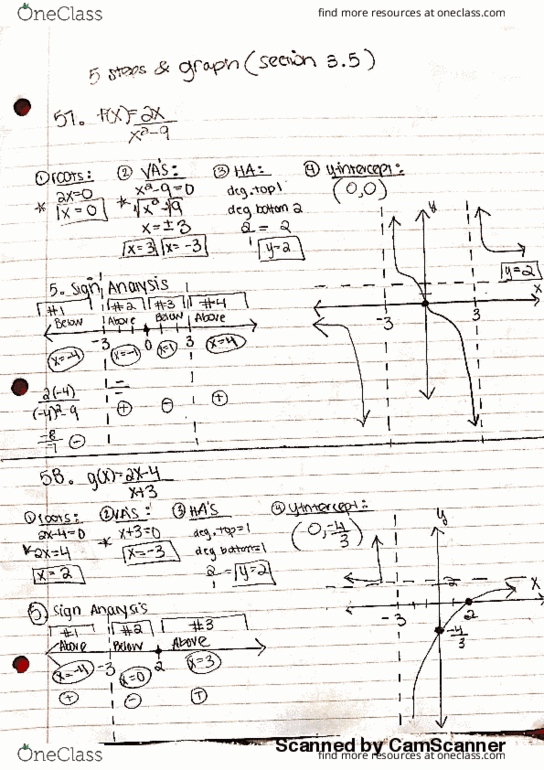 OneClass
find more resources at oneclass.com
5 steps & graph (section 3.5)
57. f(x)=2x
x²-9
① roots:
2x=0
* x=0
② VA's:
x²-9=0
* √x² √9
x=±3
x=3 x=-3
③ HA:
deg. top 1
deg bottom 2
2 = 2
1
y=2
④ y-intercept:
(0,0)
y
y=2
x
-3
3
5. Sign Analysis
#1 #2 #3 #4
Below Above Below Above
-3 0 3
x=-4 x=-1 x=1 x=4
2(-4)
(-4)²-9
-8
-7
- + - +
58. g(x)=2x-4
x+3
① roots:
2x-4=0
* 2x=4
x=2
② VA's:
* x+3=0
x=-3
③ HA's
deg. top=1
deg bottom=1
2 = y=2
1
④ y-intercept:
(0,-4
3)
y
2
x
-3
2
-4
3
⑤ Sign Analysis
#1 #2 #3
Above Below Above
-3 2
x=-4 x=0 x=3
+ - +
Scanned by CamScanner
OneClass
find more resources at oneclass.com